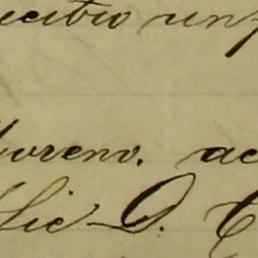 recibio un
Moreno. ac
Lic D.